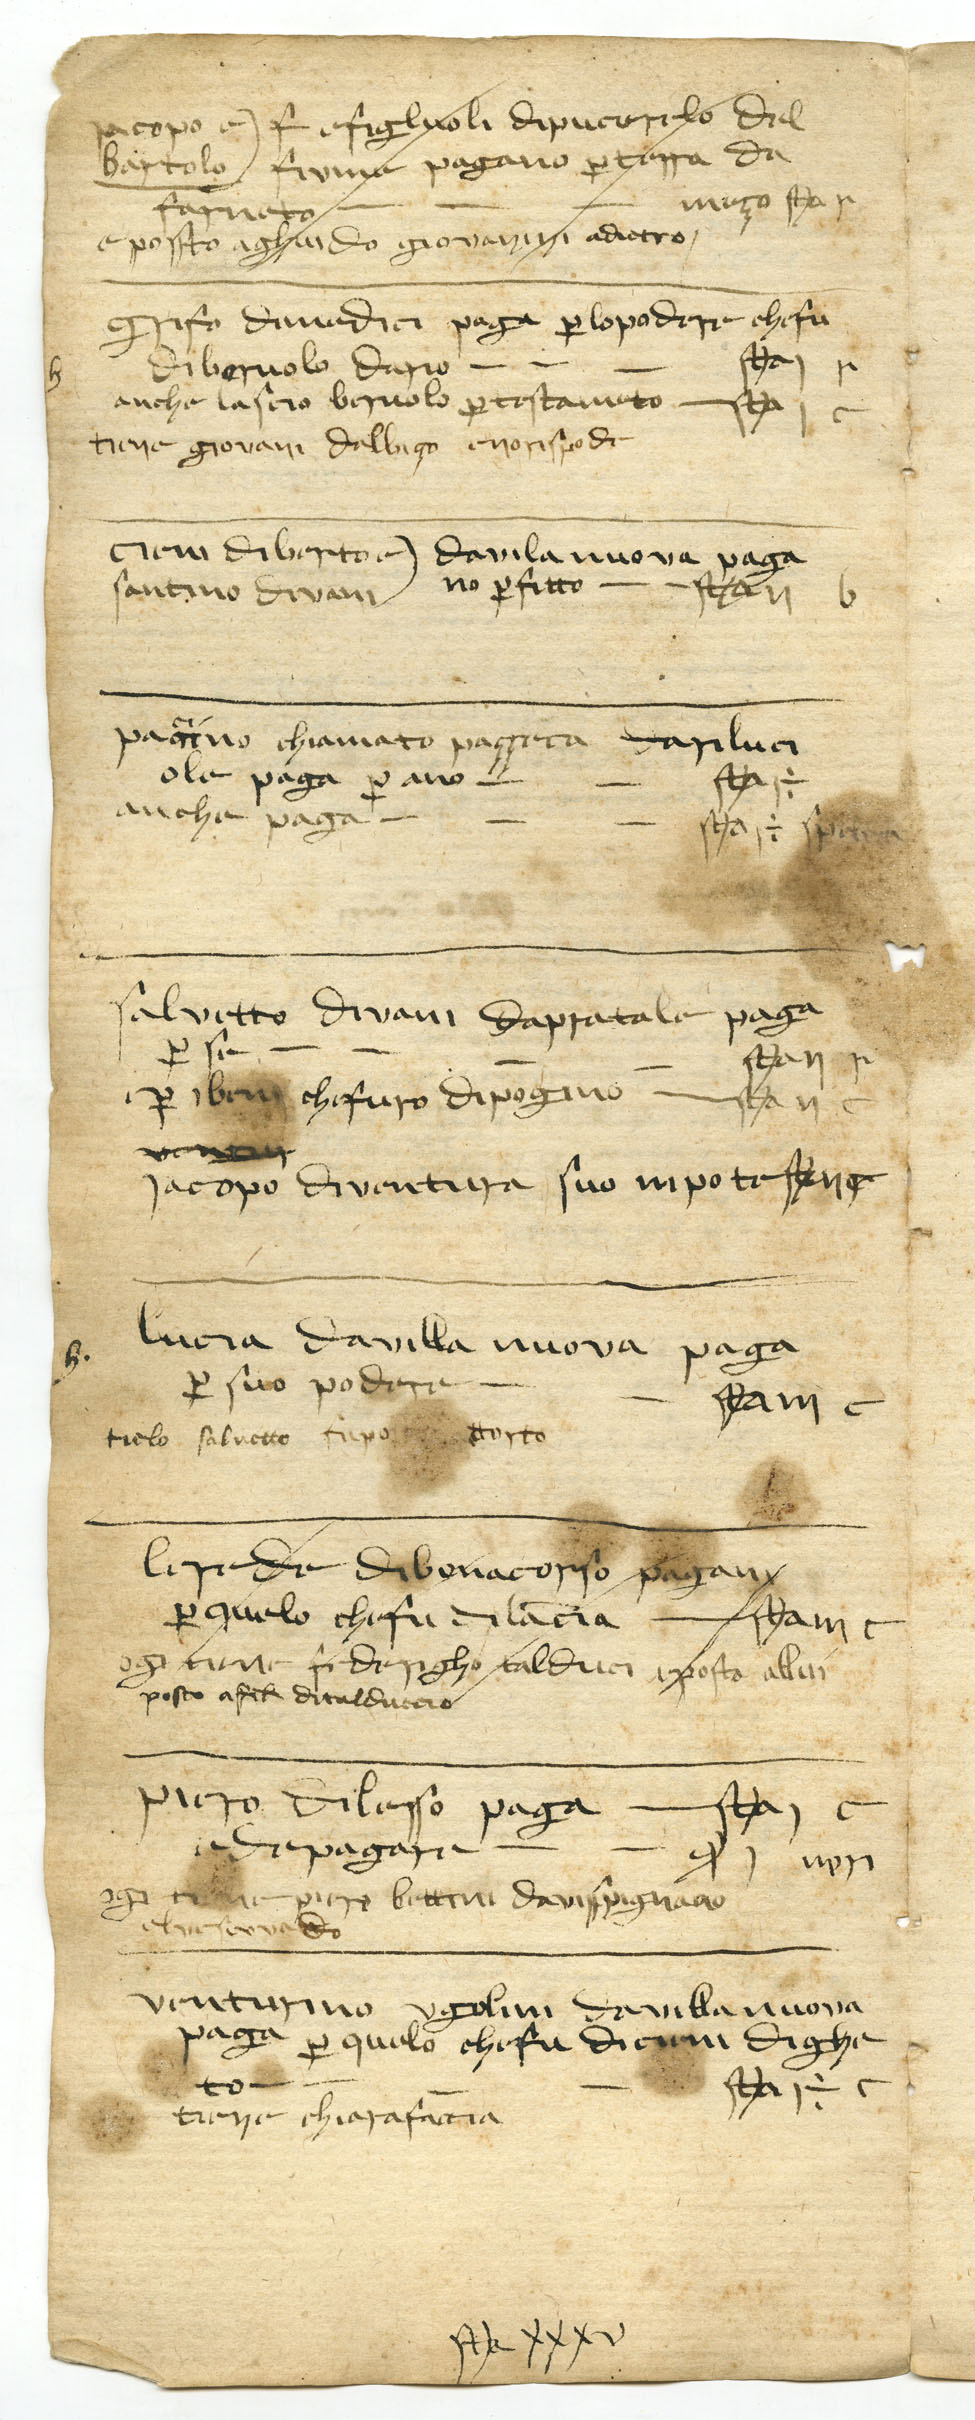 jacopo e) f e figluoli di pucierelo del
bartolo) fiume pagano p terra da
farneto — — — mezo star r
e possto a ghuido giovanini adietro
grifo di nedici paga p lo podere che fu
h di bernolo dario — — — sta j r
anche lascio bernolo p testameto — sta j c
tiene giovani dalbigo e no rispode
cieni di berto e) da vila nuova paga
santino di vani) no p fitto — — sta ij b
pagino chiamato passera da riluci
ole paga p ano — — sta j ÷
anche paga — — — sta j ÷
salvetto di vani da pratale paga
p sie — — — — sta ij r
e p i beni che furo di pogino — sta ij c
jacopo di ventura suo nipote sta ij c
h. lucia da villa nuova paga
p suo podere — — sta iij c
tielo salvetto torto
le rede di bonacorso pagan
p quelo che fu di lacia — sta iij c
ogi tiene federigho talduci e posto
posto a di talduccio
piero di lesso paga — sta j c
e de pagare — — j
ogi tiene piero bettini da vispignano
venturino ugolini da villa nuova
paga p quelo che fu di cieni di ghe
to — — — sta j ÷ c
tiene chiarafacia
sta xxxv